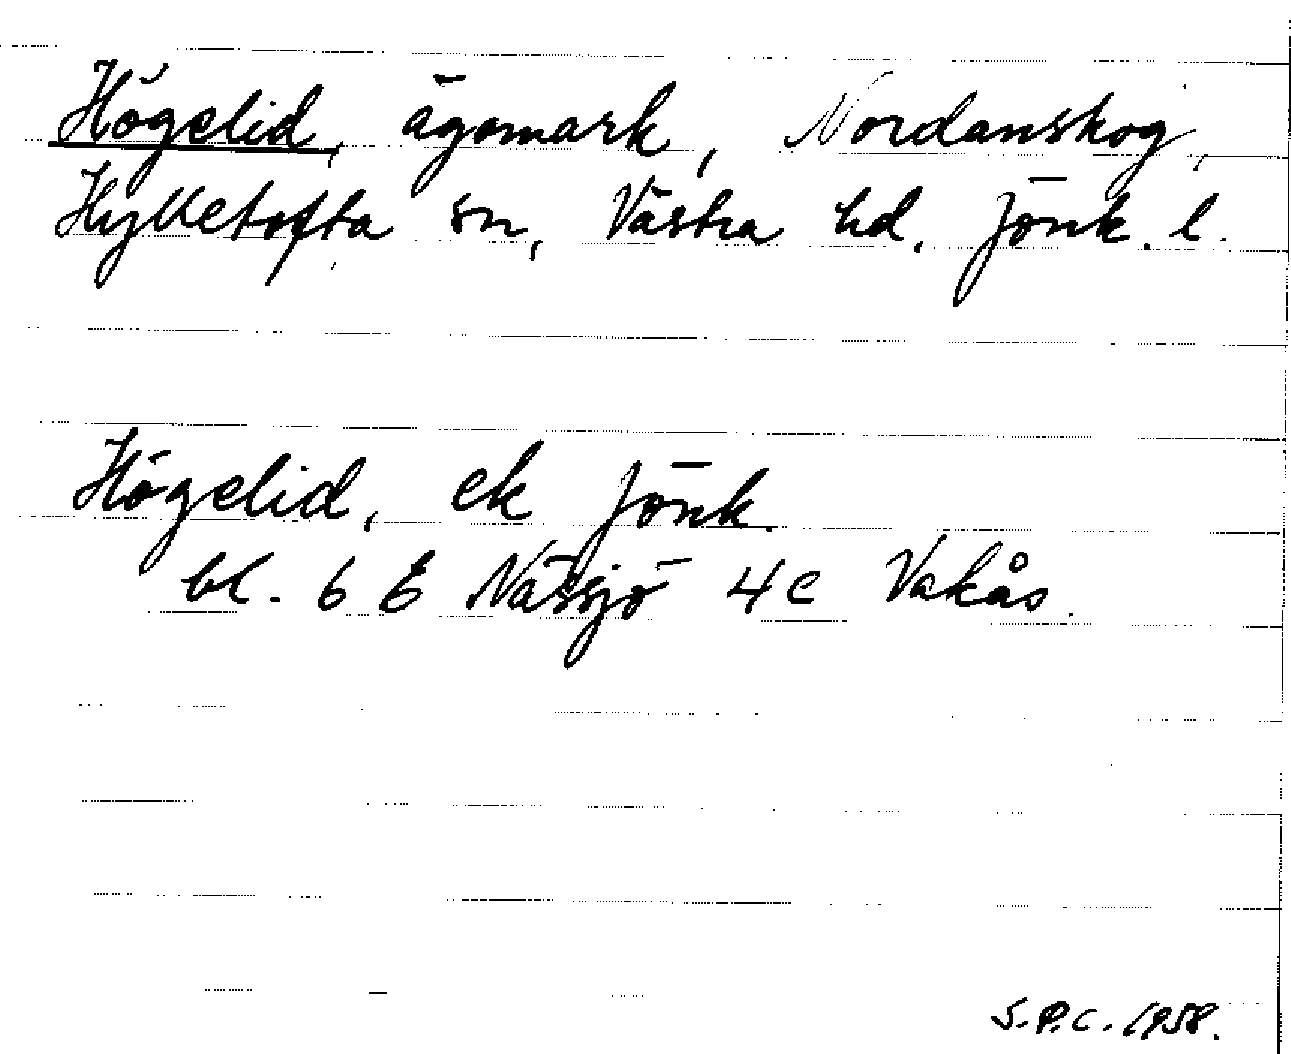 Högelid, ägomark, Nordanskog,
Hylletofta sn, Västra hd. Jönk. l.
Högelid, ek Jönk.
bl. 6 E Nässjö 4 c Vakås.
S.P.C. 1958.